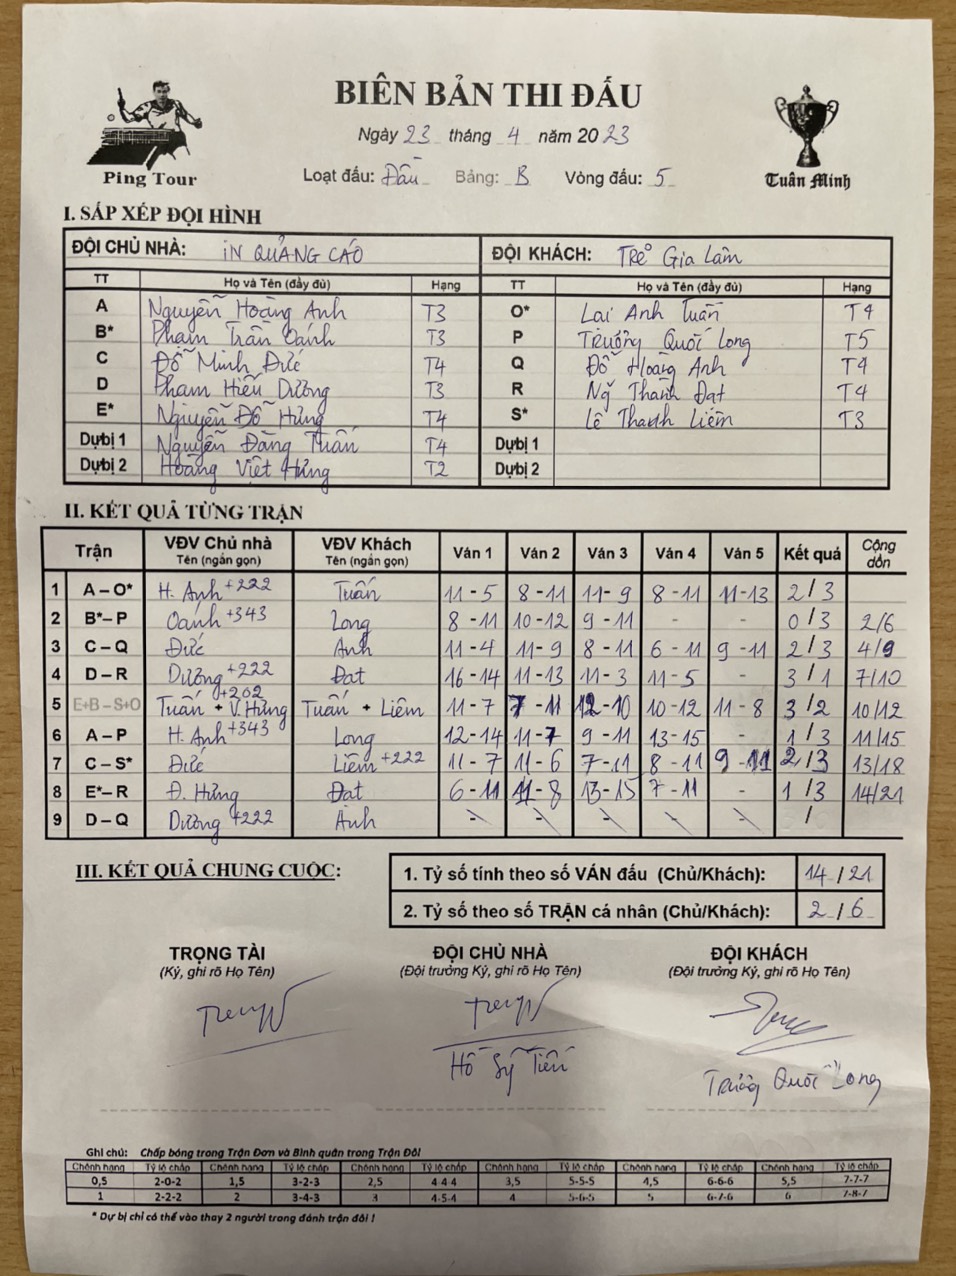 BIÊN BẢN THI ĐẤU
Ping Tour
Tuấn Minh
Ngày 23 tháng 4 năm 2023
Loạt đấu: Đầu Bảng: B Vòng đấu: 5
I. SẮP XẾP ĐỘI HÌNH
ĐỘI CHỦ NHÀ: IN QUẢNG CÁO ĐỘI KHÁCH: Trẻ Gia Lâm
TT Họ và Tên (đầy đủ) Hạng TT Họ và Tên (đầy đủ) Hạng
A Nguyễn Hoàng Anh T3 O* Lại Anh Tuấn T4
B* Phạm Trần Oánh T3 P Trường Quốc Long T5
C Đỗ Minh Đức T4 Q Đỗ Hoàng Anh T4
D Phạm Hiếu Dương T3 R Ng Thành Đạt T4
E* Nguyễn Đỗ Hưng T4 S* Lê Thanh Liêm T3
Dự bị 1 Nguyễn Đăng Tuấn T4 Dự bị 1
Dự bị 2 Hoàng Việt Hưng T2 Dự bị 2
II. KẾT QUẢ TỪNG TRẬN
Trận VĐV Chủ nhà Tên (ngắn gọn) VĐV Khách Tên (ngắn gọn) Ván 1 Ván 2 Ván 3 Ván 4 Ván 5 Kết quả Cộng dồn
1 A – O* H. Anh +222 Tuấn 11 - 5 8 - 11 11 - 9 8 - 11 11 - 13 2 / 3
2 B* – P Oánh +343 Long 8 - 11 10 - 12 9 - 11 - - 0 / 3 2/6
3 C – Q Đức Anh 11 - 4 11 - 9 8 - 11 6 - 11 9 - 11 2 / 3 4/9
4 D – R Dương +222 Đạt 16 - 14 11 - 13 11 - 3 11 - 5 - 3 / 1 7/10
5 E+B – S+O Tuấn + V. Hưng +202 Tuấn + Liêm 11 - 7 7 - 11 12 - 10 10 - 12 11 - 8 3 / 2 10/12
6 A – P H. Anh +343 Long 12 - 14 11 - 7 9 - 11 13 - 15 - 1 / 3 11/15
7 C – S* Đức Liêm +222 11 - 7 11 - 6 7 - 11 8 - 11 9 - 11 2 / 3 13/18
8 E* – R Đ. Hưng Đạt 6 - 11 11 - 8 13 - 15 7 - 11 - 1 / 3 14/21
9 D – Q Dương +222 Anh - - - - - /
III. KẾT QUẢ CHUNG CUỘC:
1. Tỷ số tính theo số VÁN đấu (Chủ/Khách): 14 / 21
2. Tỷ số theo số TRẬN cá nhân (Chủ/Khách): 2 / 6
TRỌNG TÀI ĐỘI CHỦ NHÀ ĐỘI KHÁCH
(Ký, ghi rõ Họ Tên) (Đội trưởng Ký, ghi rõ Họ Tên) (Đội trưởng Ký, ghi rõ Họ Tên)
Hồ Sỹ Tiến
Trường Quốc Long
Ghi chú: Chấp bóng trong Trận Đơn và Bình quân trong Trận Đôi
Chênh hạng Tỷ lệ chấp Chênh hạng Tỷ lệ chấp Chênh hạng Tỷ lệ chấp Chênh hạng Tỷ lệ chấp Chênh hạng Tỷ lệ chấp Chênh hạng Tỷ lệ chấp
0,5 2-0-2 1,5 3-2-3 2,5 4-4-4 3,5 5-5-5 4,5 6-6-6 5,5 7-7-7
1 2-2-2 2 3-4-3 3 4-5-4 4 5-6-5 5 6-7-6 6 7-8-7
* Dự bị chỉ có thể vào thay 2 người trong đánh trận đôi !